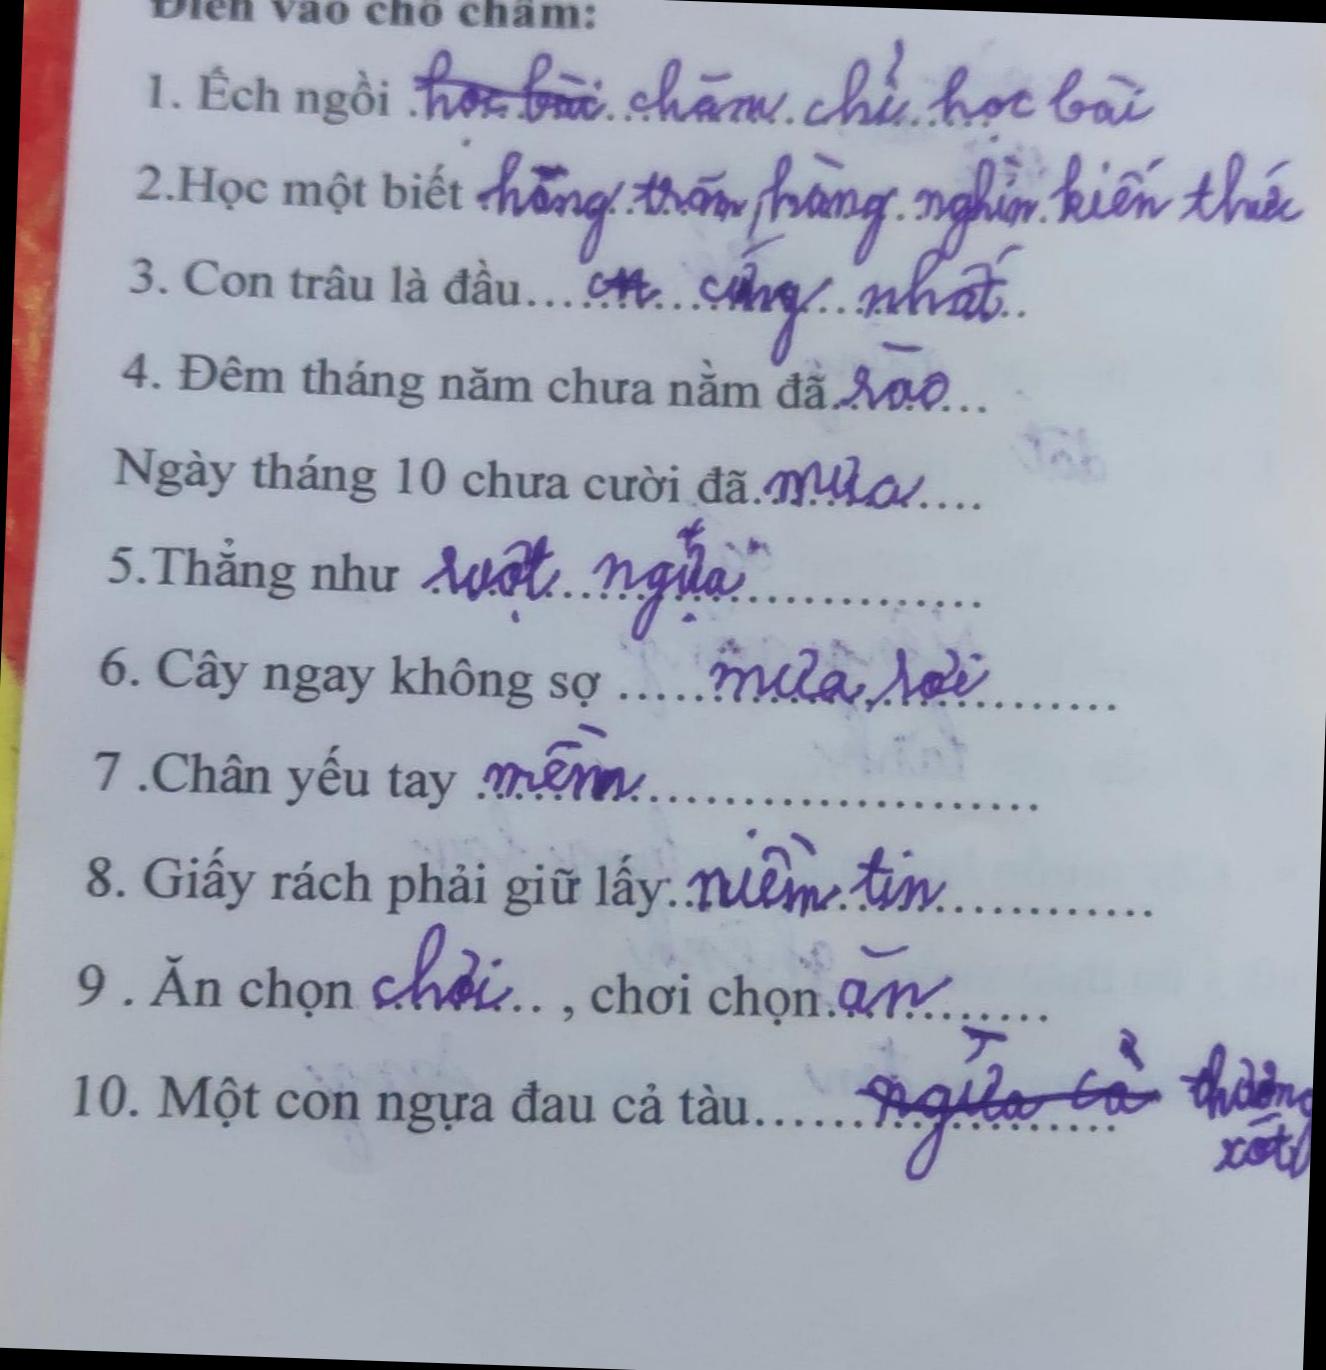 Điền vào chỗ chấm:
1. Ếch ngồi học bài chăm chỉ học bài
2.Học một biết hàng trăm, hàng nghìn kiến thức
3. Con trâu là đầu...... cứng nhất..
4. Đêm tháng năm chưa nằm đã.........
Ngày tháng 10 chưa cười đã.mưa....
5.Thẳng như ruột ngựa..............
6. Cây ngay không sợ .....mưa, rơi........
7 .Chân yếu tay mềm....................
8. Giấy rách phải giữ lấy:..niềm tin............
9 . Ăn chọn chơi.. , chơi chọn.ăn.......
10. Một con ngựa đau cả tàu......ngựa cả thương
xót